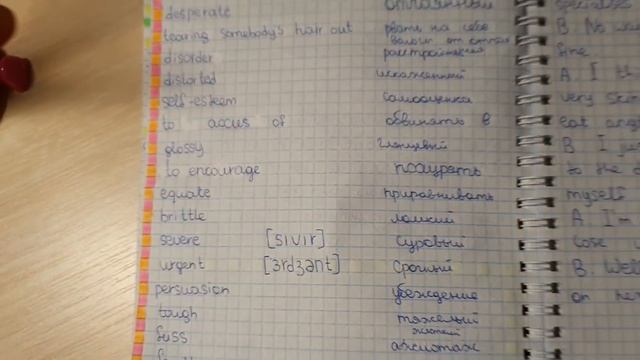 desperate отчаянный
tearing somebody's hair out рвать на себе
волосы от отчая
disorder расстройство
distorted искаженный
self-esteem самооценка
to accus of обвинять в
glossy глянцевый
to encourage поощрять
equate приравнивать
brittle ломкий
severe [sıvır] суровый
urgent [ɜrdʒənt] срочный
persuasion убеждение
tough тяжелый
жесткий
fuss ажиотаж
B. No
fine
A. I th
very skin
eat
B I ju
to the
myself
A. I'm
lose
B. Well
on her